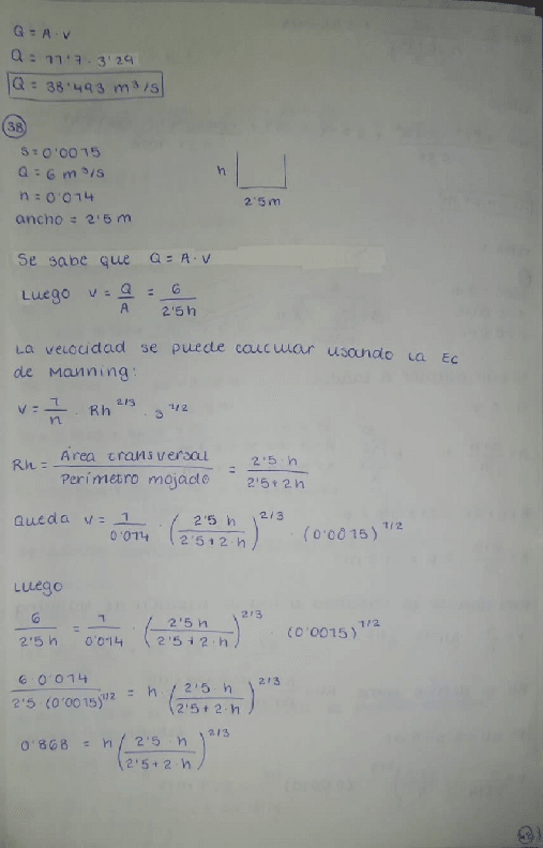 Q = A · V
Q = 11'7 · 3'29
Q = 38'493 m³/s
38
S = 0'0015
Q = 6 m³/s
n = 0'014
ancho = 2'5 m
h
2'5 m
Se sabe que Q = A · V
Luego V = Q/A = 6/2'5h
La velocidad se puede calcular usando la Ec
de Manning:
V = 1/n · Rh^2/3 · S^1/2
Rh = Área transversal/Perímetro mojado = 2'5 · h/2'5 + 2h
Queda V = 1/0'014 · (2'5 h/2'5 + 2 · h)^2/3 · (0'0015)^1/2
Luego
6/2'5 h = 1/0'014 · (2'5 h/2'5 + 2 · h)^2/3 · (0'0015)^1/2
6 · 0'014/2'5 · (0'0015)^1/2 = h · (2'5 · h/2'5 + 2 · h)^2/3
0'868 = h (2'5 · h/2'5 + 2 · h)^2/3